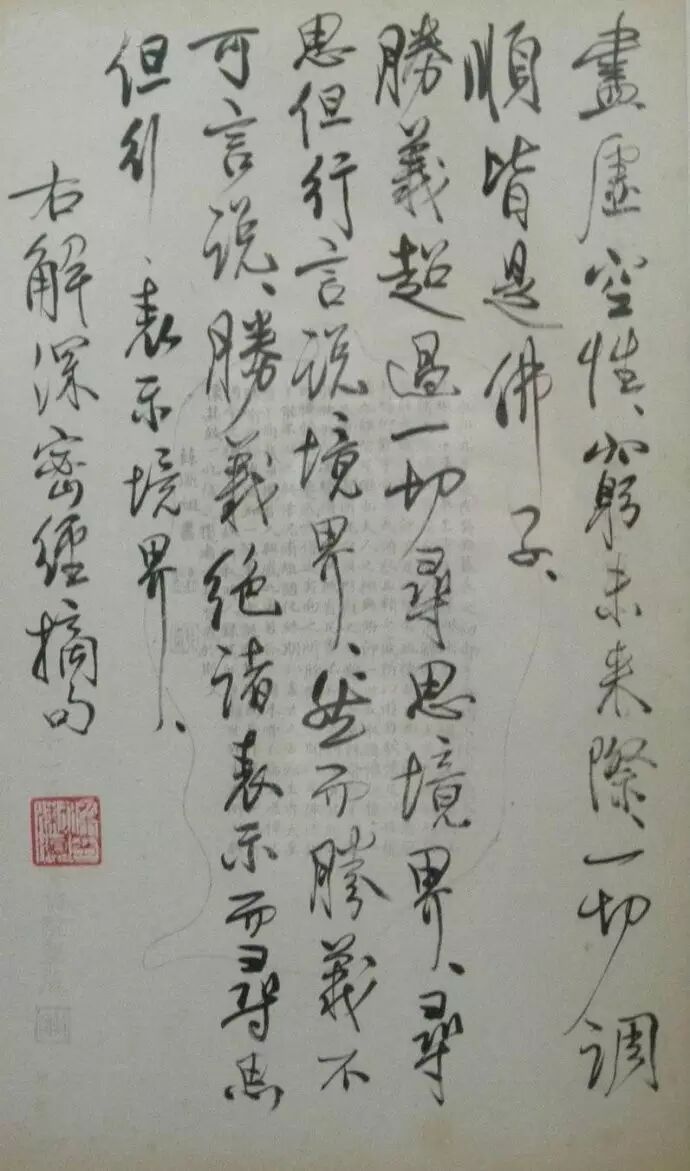 盡虛空性、窮未來際、一切調
順皆是佛子、
勝義超過一切尋思境界、尋
思但行言说境界、然而勝義不
可言说、勝義絕諸表示而尋思
但行表示境界、
右解深密經摘句